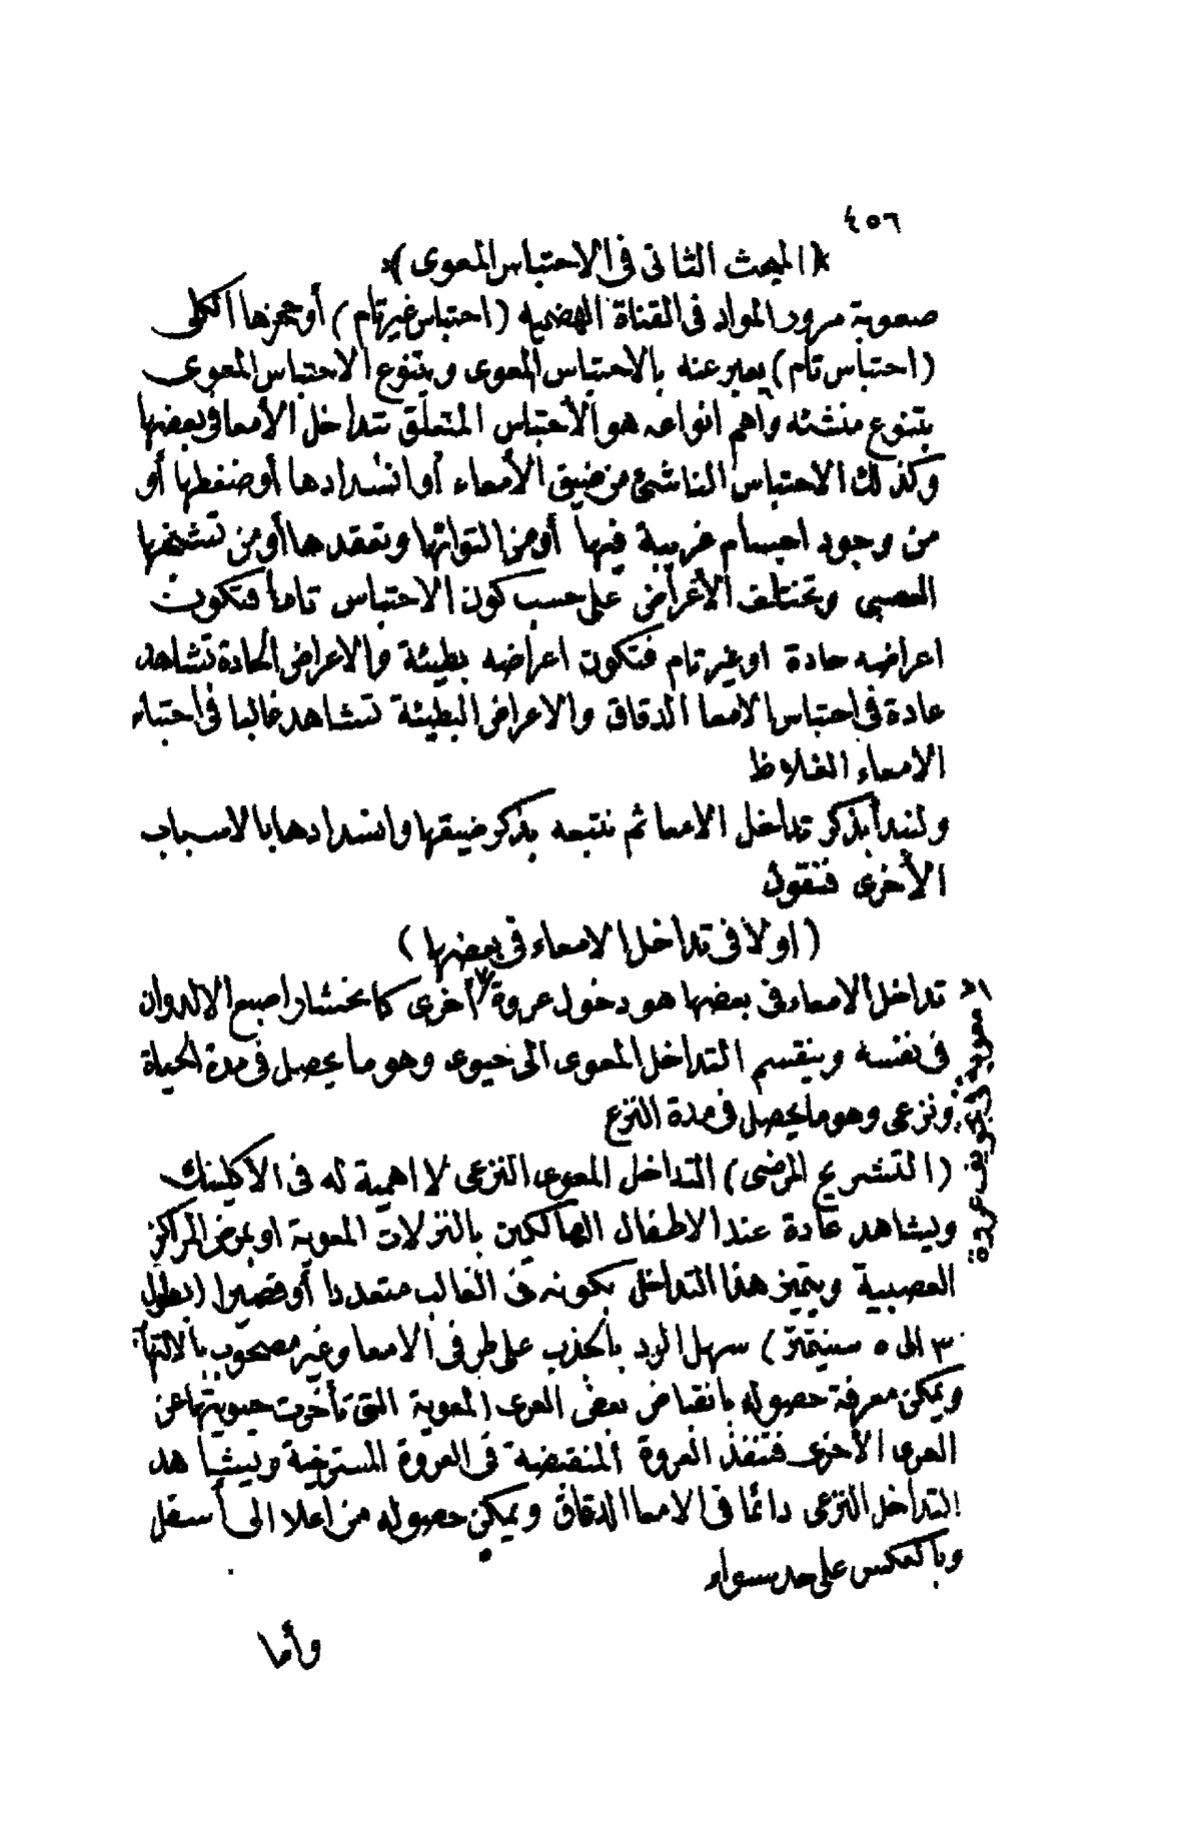 ٤٥٦
*(المبحث الثانى فى الاحتباس المعوى)*
صعوبة مرور المواد فى القناة الهضميه (احتباس غير تام) أو حجزها الكلى
(احتباس تام) يعبر عنه بالاحتباس المعوى ويتنوع الاحتباس المعوى
بتنوع منشئه وأهم انواعه هو الاحتباس المتعلق بتداخل الأمعا فى بعضها
وكذلك الاحتباس الناشئ من ضيق الأمعاء أو انسدادها أو ضغطها أو
من وجود اجسام غريبة فيها أو من التوائها وتعقدها أو من تشنجها
العصبى وتختلف الأعراض على حسب كون الاحتباس تاما فتكون
اعراضه حادة او غير تام فتكون اعراضه بطيئة والاعراض الحادة تشاهد
عادة فى احتباس الامعا الدقاق والاعراض البطيئة تشاهد غالبا فى احتباس
الامعاء الغلاظ
ولنبدأ بذكر تداخل الامعا ثم نتبعه بذكر ضيقها وانسدادها بالاسباب
الأخرى فنقول
(اولا فى تداخل الامعاء فى بعضها)
تداخل الامعاء فى بعضها هو دخول عروة أخرى كانخشار اصبع الالدوان
فى نفسه وينقسم التداخل المعوى الى حيوى وهو ما يحصل فى مدة الحياة
ونزعى وهو ما يحصل فى مدة النزع
معوية فى تجويف عروة
(التشريح المرضى) التداخل المعوى النزعى لا اهمية له فى الاكلينك
ويشاهد عادة عند الاطفال الهالكين بالنزلات المعوية او بمرض المراكز
العصبية ويتميز هذا التداخل بكونه فى الغالب متعددا أو قصيرا (بطول
٣ الى ٥ سنيتمتر) سهل الرد بالجذب على طرفى الامعا وغير مصحوب بالالتهاب
ويمكن معرفة حصوله بانقباض بعض العرى المعوية التى تأخرت حيويتها عن
العرى الأخرى فتنفذ العروة المنقبضة فى العروة المسترخية ويشاهد
التداخل النزعى دائما فى الامعا الدقاق ويمكن حصوله من أعلا الى أسفل
وبالعكس على حد سواء
وأما